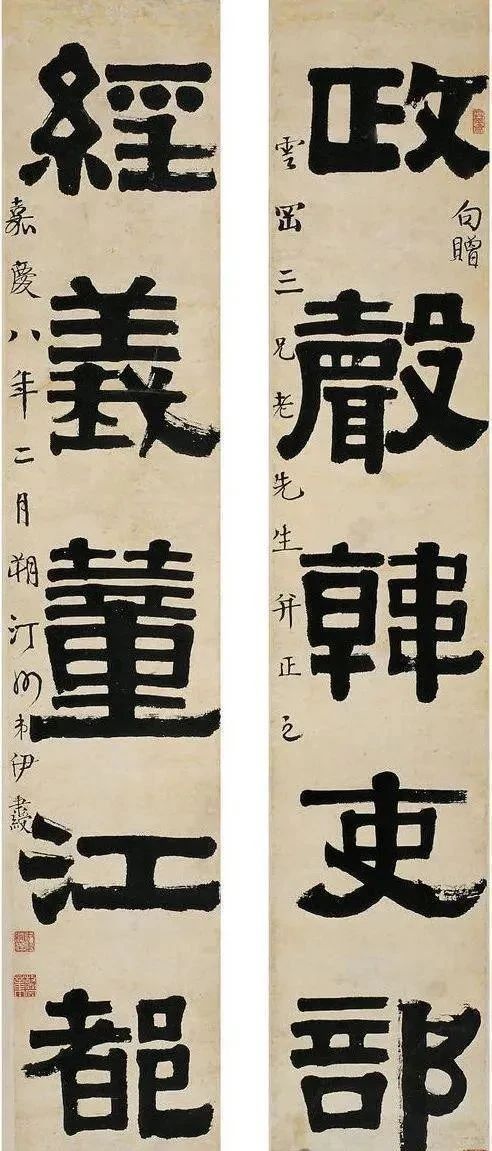 政聲韓吏部
句贈
雲罡三兄老先生并正之
經義董江都
嘉慶八年二月朔汀州弟伊秉綬